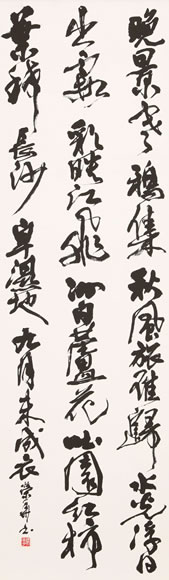 晚景寒鴉集秋風旅雁歸水光浮日
出霞彩映江飛洲白蘆花吐園紅柿
葉稀長沙卑濕地九月未成衣